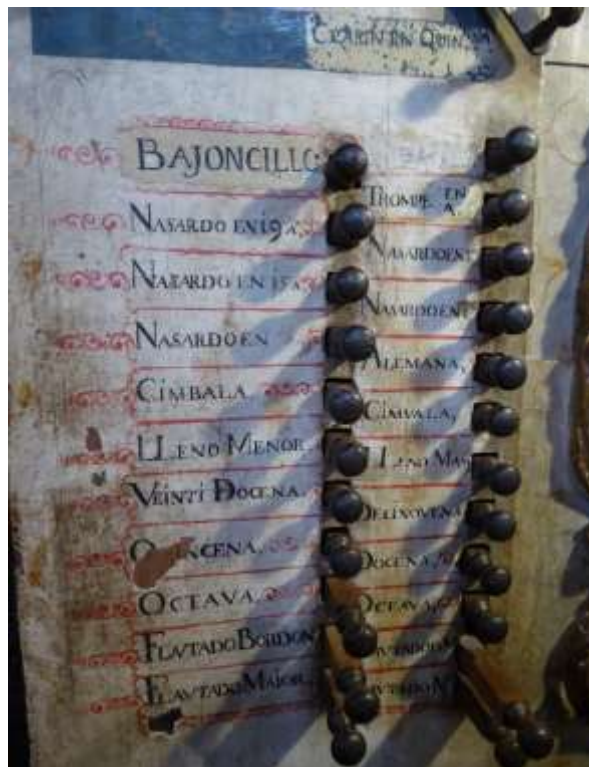 CLARIN EN QUIN
BAJONCILLO
NASARDO EN 19 A.
NAZARDO EN 15 A
NASARDO EN
CÍMBALA
LLENO MENOR.
VEINTI DOCENA.
QUINCENA.
OCTAVA.
FLAVTADO BORDON
FLAVTADO MAIOR.
TROMPE EN A.
NASARDO EN
NASARDO EN
ALEMANA,
CÍMVALA,
LLENO MAY
DECINOVENA
DOCENA,
OCTAVA,